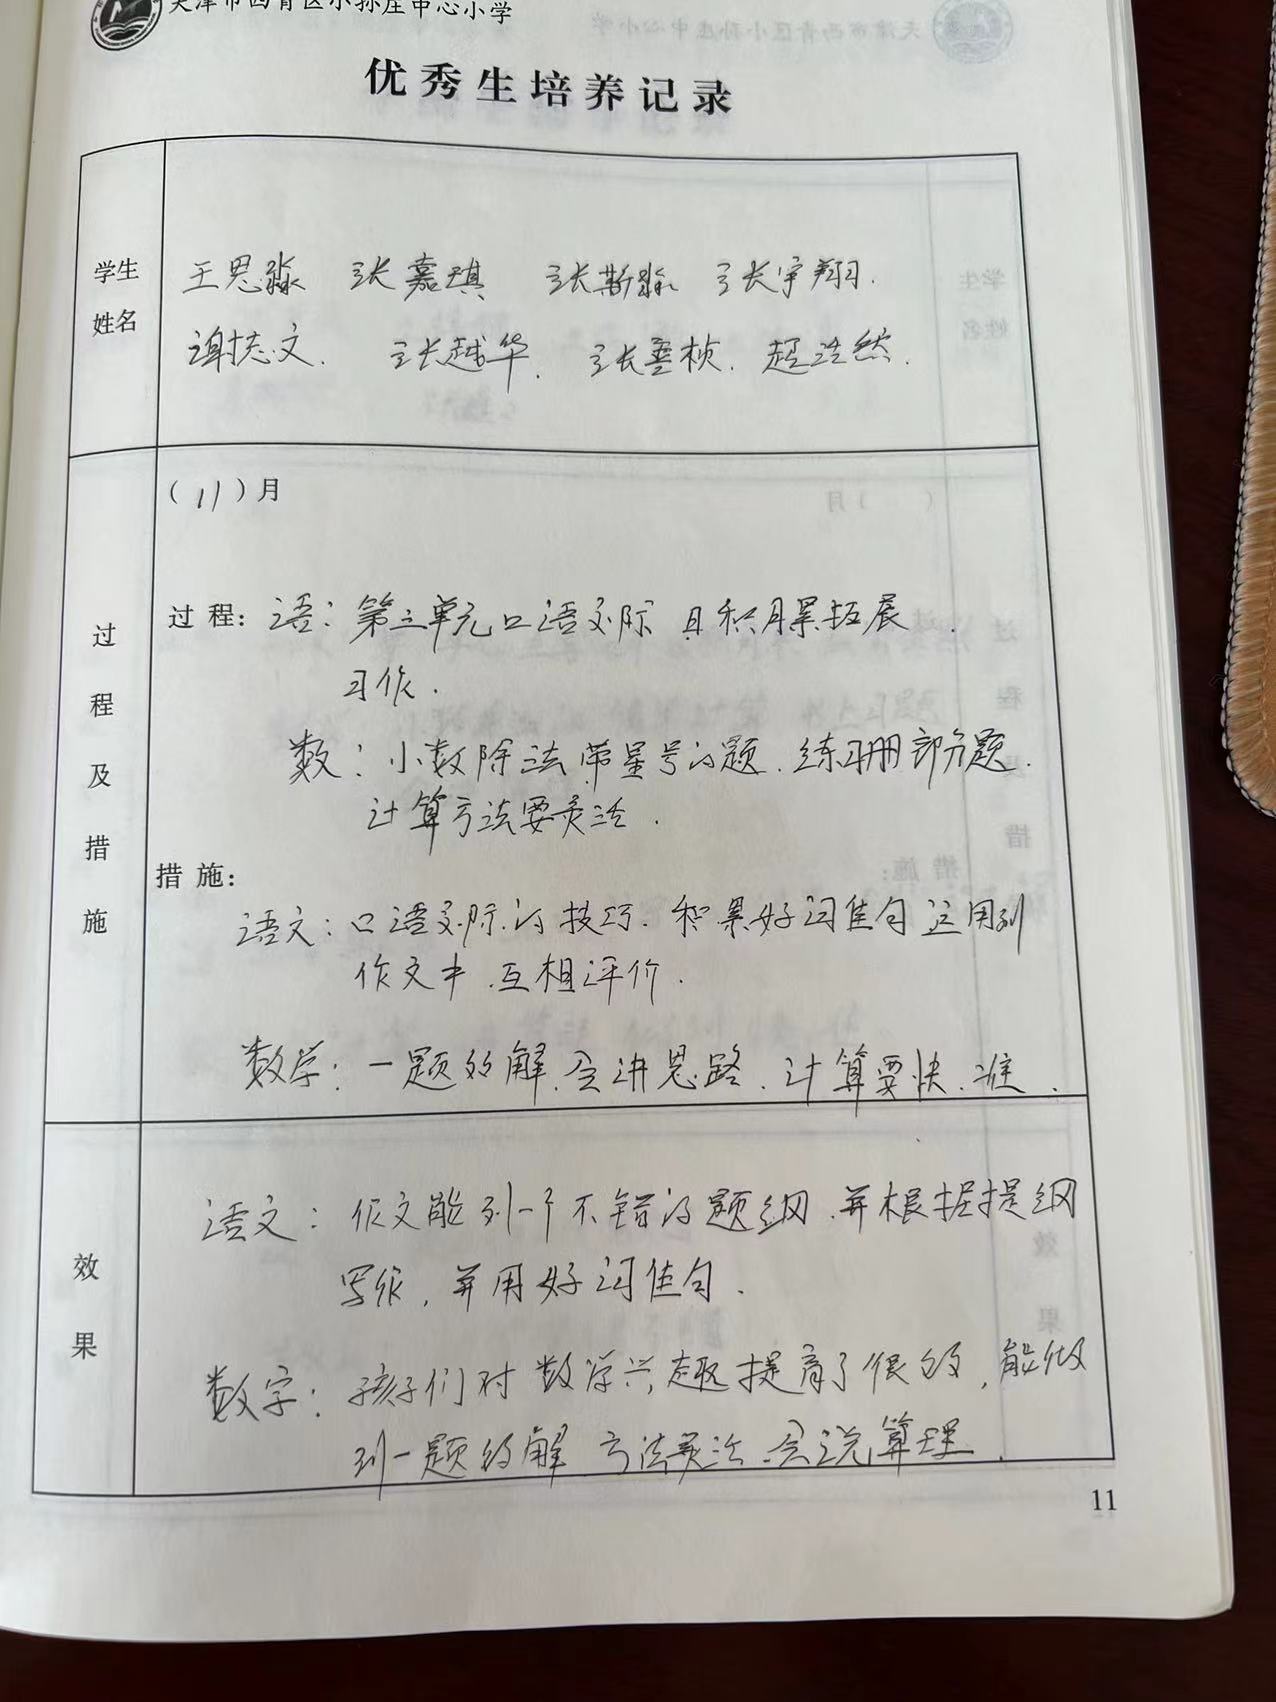 天津市西青区小孙庄中心小学
优秀生培养记录
学生
姓名
王思淼 张嘉琪 张斯淼 张宇翔.
谢志文. 张越华. 张桢. 赵浩然.
过程及措施
(11)月
过程: 语: 第三单元口语交际 日积月累拓展.
习作.
数: 小数除法带星号的题. 练习册部分题.
计算方法要灵活.
措施:
语文: 口语交际的技巧. 积累好词佳句运用到
作文中. 互相评价.
数学: 一题多解. 会讲思路. 计算要快. 准.
效果
语文: 作文能列一个不错的题纲. 并根据提纲
写作, 并用好词佳句.
数字: 孩子们对数学兴趣提高了很多, 能做
到一题多解 方法灵活. 会说算理.
11